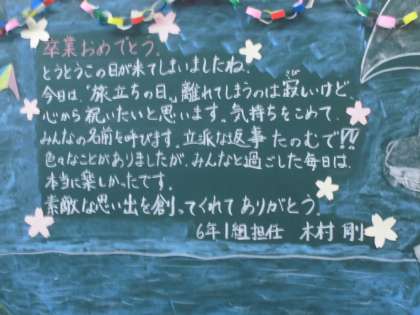 卒業おめでとう。
とうとうこの日が来てしまいましたね。
今日は、"旅立ちの日"。離れてしまうのは寂しいけど、
心から祝いたいと思います。気持ちをこめて、
みんなの名前を呼びます。立派な返事たのむで!!
色々なことがありましたが、みんなと過ごした毎日は、
本当に楽しかったです。
素敵な思い出を創ってくれてありがとう。
6年1組担任 木村 剛